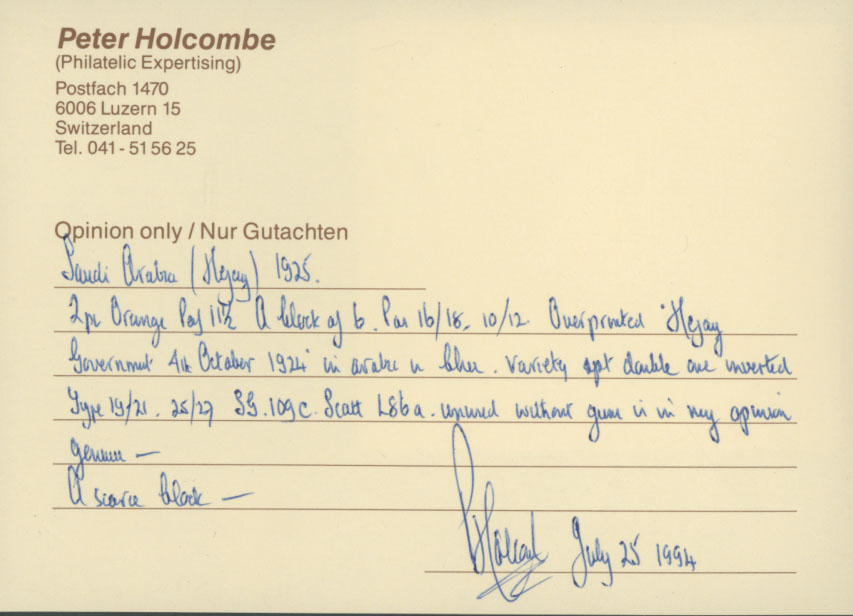 Peter Holcombe
(Philatelic Expertising)
Postfach 1470
6006 Luzern 15
Switzerland
Tel. 041 - 51 56 25
Opinion only / Nur Gutachten
Saudi Arabia (Hejaz) 1925.
2pi Orange Perf 11½ A block of 6. Pos 16/18. 10/12. Overprinted "Hejaz
Government 4th October 1924" in arabic in blue. Variety opt double one inverted
Type 19/21. 25/27 SG. 109c. Scott L86a. unused without gum is in my opinion
genuine —
A scarce block —
July 25 1994